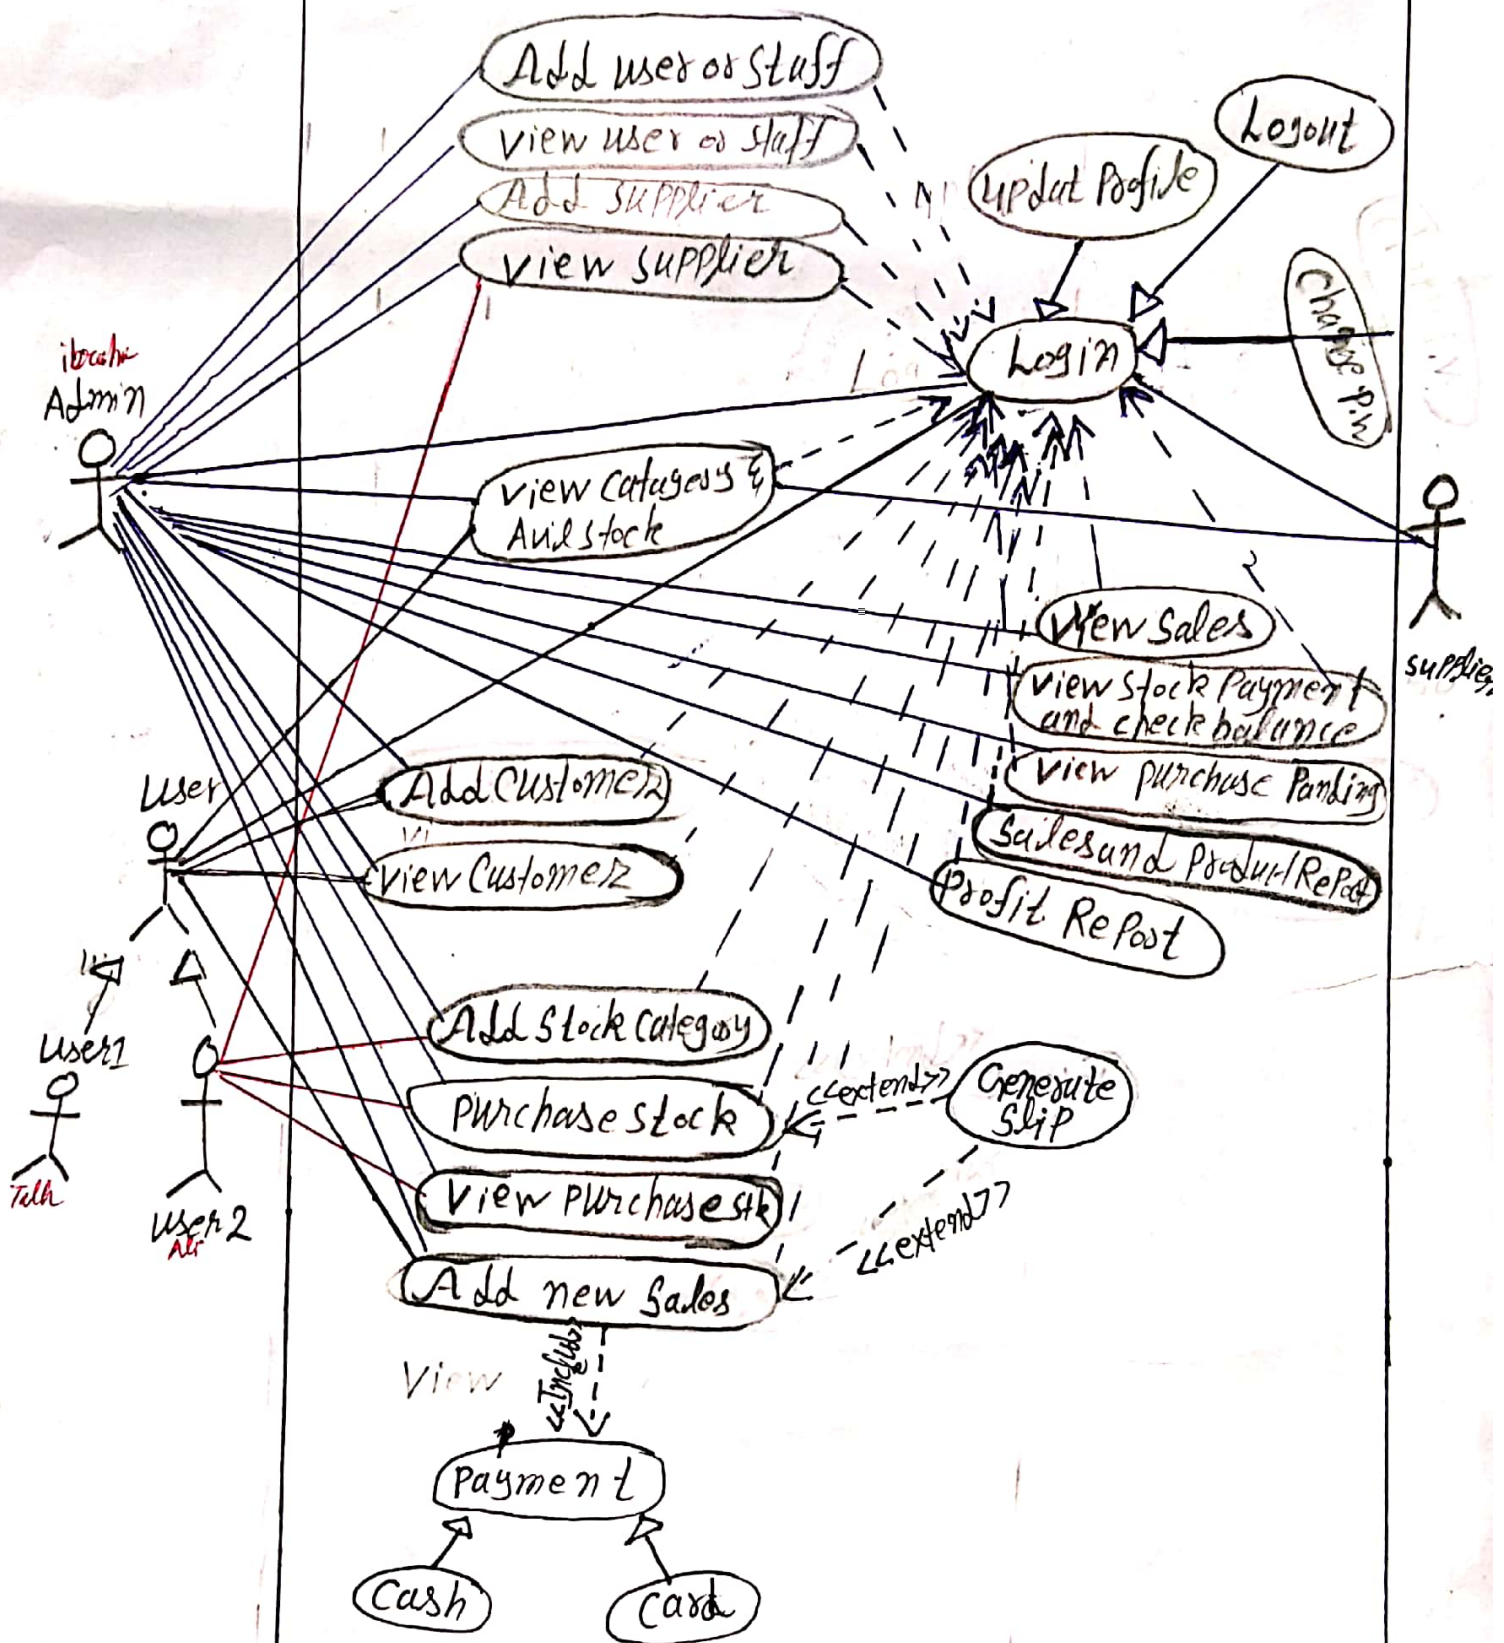 Add user or Staff
view user or staff
Add supplier
View supplier
Logout
updat Profile
Login
Change P.W
Admin
View Catagory &
Avil Stock
View Sales
View Stock Payment
and check balance
View purchase Panding
Sales and Product RePort
Profit RePort
supplier
User
Add Customer
View Customer
User1
User2
Ali
Add Stock Category
Purchase Stock
View Purchase Stk
Add new Sales
<<extend>>
Generate
Slip
<<extend>>
<<Includ>>
View
Payment
Cash
Card